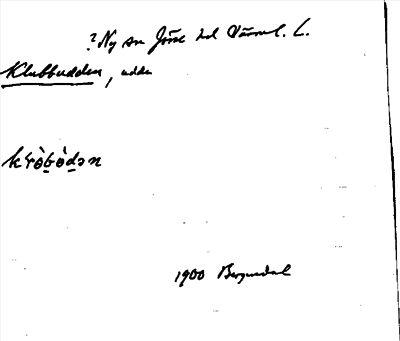 ? Ny sn Jösse hd Värml. L.
Klubbudden, udde
krò̀bò̀dən
1900 Bergendal